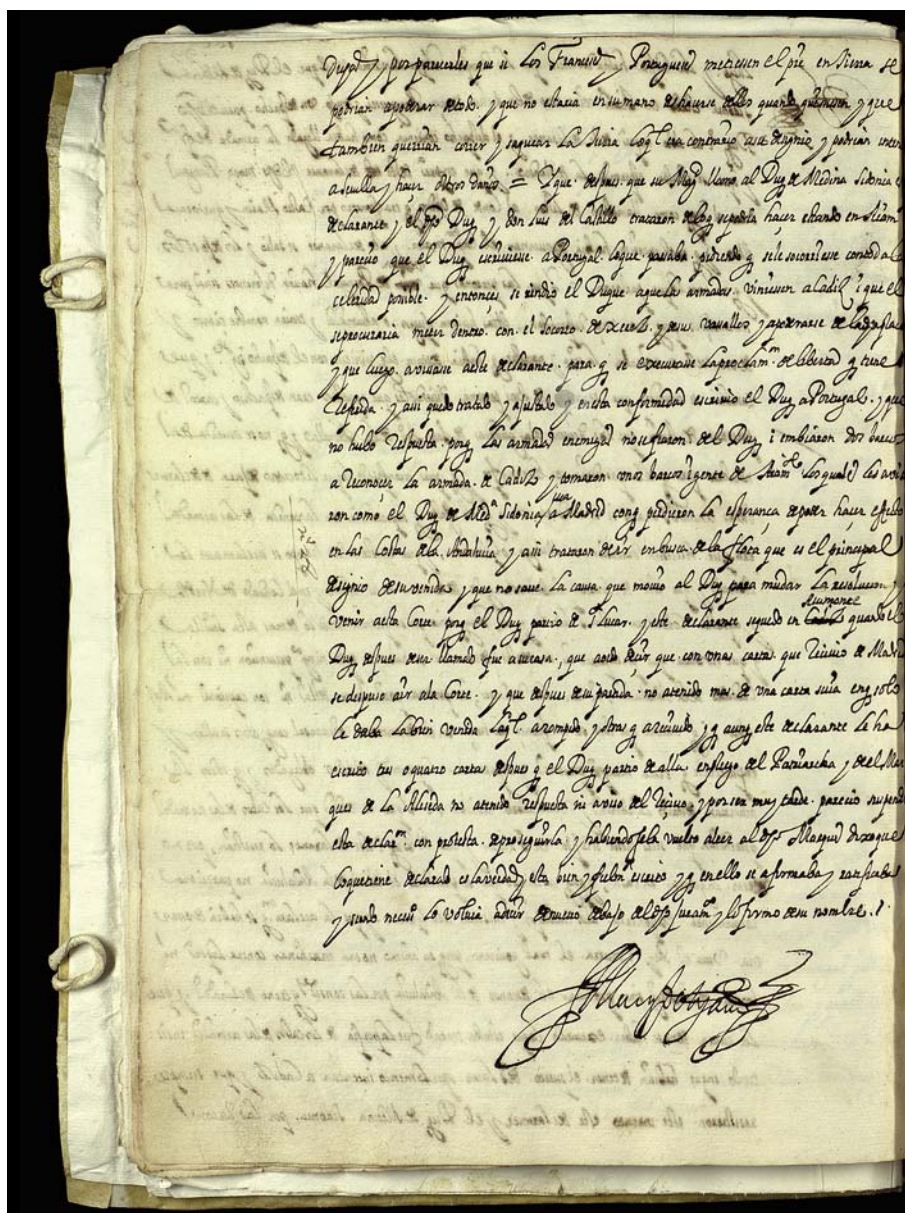 y por parecerles que si los Franceses y Portugueses metiessen el pie en tierra se
podrian apoderar de todo. y que no estaria en su mano echarse dellos quando quisiesen y que
tambien querrian correr y saquear la tierra loql era contrario a su designio y podrian
a Sevilla y hacer otros daños = Y que despues que su Magd llamo al Duq de Medina Sidonia
declarante y el dho Duq y don Luis del Castillo trataron de loq se podia hacer estando en
y parecio que el Duq escriviesse a Portugal loque pasaba pidiendo q se le socorriesse con toda la
celeridad posible. y entonces se rindio el Duque aque las armadas viniessen a Cadiz i que el
se procuraria meter dentro con el socorro de Xerez y sus vasallos y apoderarse de la dha plaça
y que luego avisasse a este declarante para q se executasse la proclamn de libertad q tiene
referida. y assi quedo tratado y ajustado y en esta conformidad escrivio el Duq a Portugal. y que
no hubo respuesta porq las armadas enemigas no se fiaron del Duq i embiaron dos barcos
a reconocer la armada de Cadiz y tomaron unos barcos i gente de los quales les avisa
ron como el Duq de Medª Sidonia iva a Madrid conq perdieron la esperança de poder hacer efecto
en las Costas de la Andalucia y assi trataron de ir en busca de la flota que es el principal
designio de su venida y que no save la causa que movio al Duq para mudar la resolucion y
Ayamonte
venir a esta Corte porq el Duq partio de S Lucar y este declarante se quedo en quando el
Duq despues de ser llamado fue a su casa, que oyo decir que con unas cartas que recivio de Madrid
se dispuso a ir a la Corte. y que despues de su partida no a tenido mas de una carta suia enq solo
le daba la bien venida laql a rompido y otras q a recivido y q aunq este declarante le ha
escrito tres o quatro cartas despues q el Duq partio de alla en pliego del Patriarcha y de el Mar
ques de la no a tenido respuesta ni aviso del recivo. y por ser muy tarde parecio suspender
esta declarn con protesta de proseguirla y habiendosela vuelto a leer al dho Marques dixo que
loque tiene declarado es la verdad y esta bien y fielmte escrito y q en ello se afirmaba y ratificaba
y siendo necesso lo volvia a decir de nuevo debajo del dho juramto y lo firmo de su nombre.